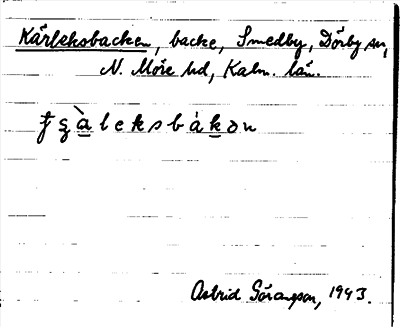 Kärleksbacken, backe, Smedby, Dörby sn,
N. Möre hd, Kalm. län.
Astrid Göransson, 1943.